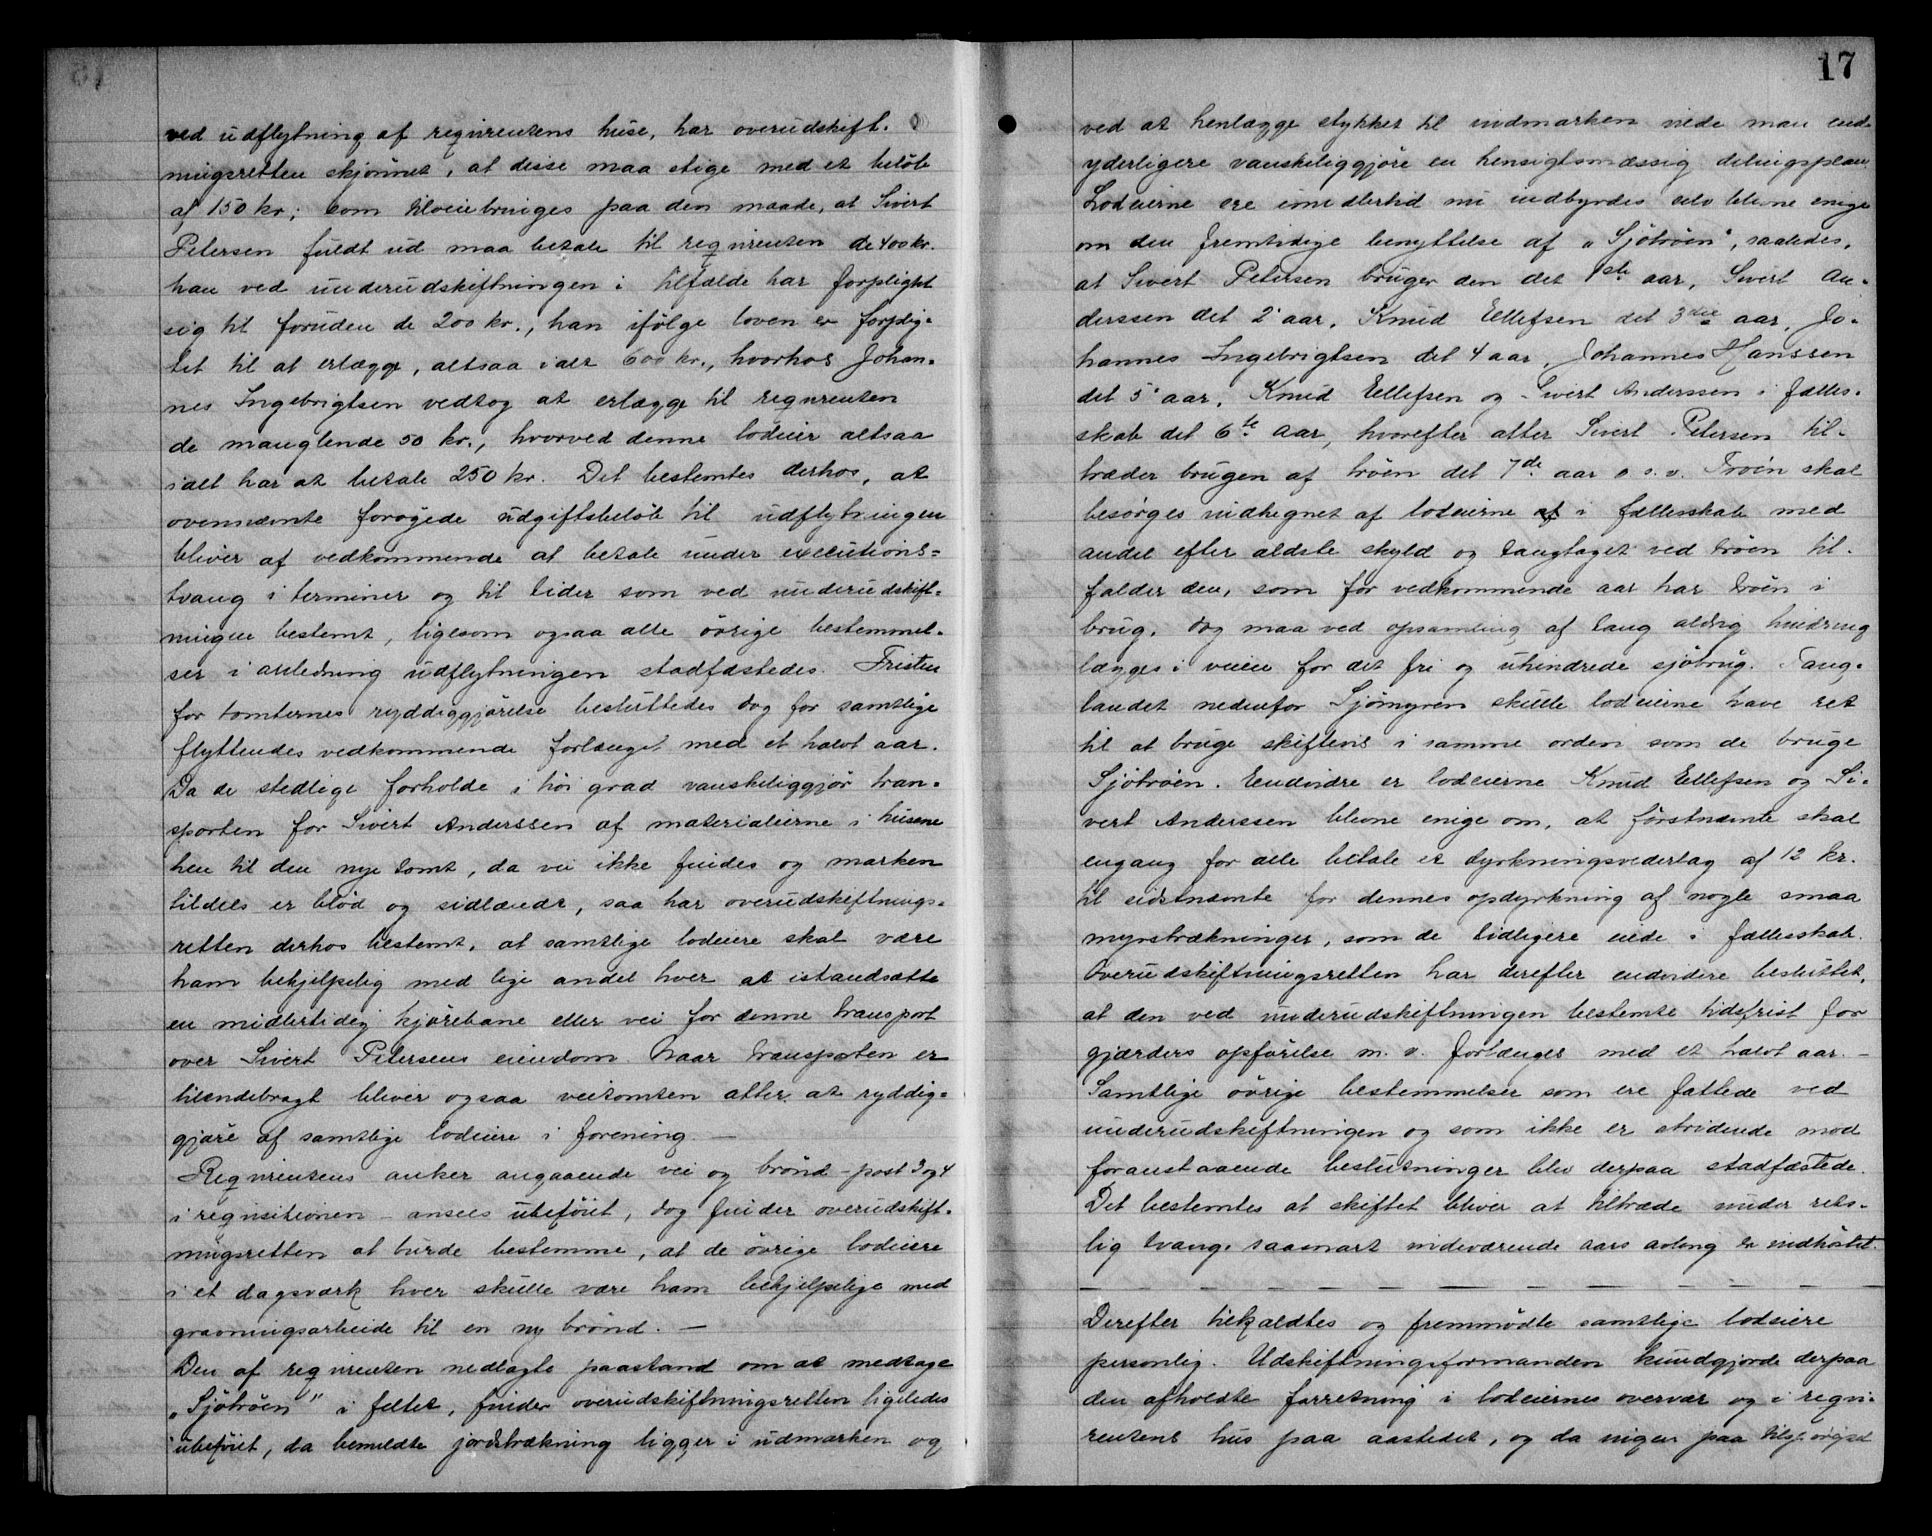 ved udflytning af reqvirentens huse, har overudskift-
ningsretten skjønnet, at disse maa stige med et beløb
af 150 kr; som tilveiebringes paa den maade, at Sivert
Petersen fuldt ud maa betale til reqvirenten de 400 kr.
han ved underudskiftningen i tilfælde har forpligt
sig til foruden de 200 kr., han ifølge loven er forplig-
tet til at erlægge, altsaa ialt 600 kr., hvorhos Johan-
nes Ingebrigtsen vedtog at erlægge til reqvirenten
de manglende 50 kr., hvorved denne lodeier altsaa
ialt har at betale 250 kr. Det bestemtes derhos, at
ovennævnte forøgede udgiftsbeløb til udflytningen
bliver af vedkommende at betale under executions=
tvang i terminer og til tider som ved underudskift-
ningen bestemt, ligesom ogsaa alle øvrige bestemmel-
ser i anledning udflytningen stadfæstedes. Fristen
for tomternes ryddiggjørelse besluttedes dog for samtlige
flyttendes vedkommende forlænget med et halvt aar.
Da de stedlige forholde i høi grad vanskeliggjør tran-
sporten for Sivert Anderssen af materialierne i husene
hen til den nye tomt, da vei ikke findes og marken
tildels er blød og sidlændt, saa har overudskiftnings-
retten derhos bestemt, at samtlige lodeiere skal være
ham behjelpelig med lige andel hver at istandsætte
en midlertidig kjørebane eller vei for denne transport
over Sivert Petersens eiendom. Naar transporten er
tilendebragt bliver ogsaa veitomten atter at ryddig-
gjøre af samtlige lodeiere i forening. —
Reqvirentens anker angaaende vei og brønd – post 3 og 4
i reqvisitionen – ansees ubeføiet, dog finder overudskift-
ningsretten at burde bestemme, at de øvrige lodeiere
i et dagsværk hver skulle være ham behjelpelige med
gravningsarbeide til en ny brønd. —
Den af reqvirenten nedlagte paastand om at medtage
„Sjøtrøen" i feltet, finder overudskiftningsretten ligeledes
ubeføiet, da bemeldte jordstrækning ligger i udmarken og
17
ved at henlægge stykket til indmarken vilde man end
yderligere vanskeliggjøre en hensigtsmæssig delingsplan.
Lodeierne ere imidlertid nu indbyrdes selv blevne enige
om den fremtidige benyttelse af „Sjøtrøen", saaledes,
at Sivert Petersen bruger den det 1ste aar, Sivert An-
derssen det 2' aar, Knud Ellefsen det 3die aar, Jo-
hannes Ingebrigtsen det 4 aar, Johannes Hanssen
det 5' aar, Knud Ellefsen og Sivert Anderssen i fælles-
skab det 6te aar, hvorefter atter Sivert Petersen til-
træder brugen af trøen det 7de aar o. s. v. Trøen skal
besørges indhegnet af lodeierne af i fællesskab med
andel efter ældste skyld og tangtaget ved trøen til-
falder den, som for vedkommende aar har trøen i
brug. dog maa ved opsamling af tang aldrig hindring
lægges i veien for det fri og uhindrede sjøbrug. Tang-
landet nedenfor Sjømyren skulle lodeierne have ret
til at bruge skiftevis i samme orden som de bruge
Sjøtrøen. Endvidre er lodeierne Knud Ellefsen og Si-
vert Anderssen blevne enige om, at førstnævnte skal
engang for alle betale et dyrkningsvederlag af 12 kr.
til sidstnævnte for dennes opdyrkning af nogle smaa
myrstrækninger, som de tidligere eiede i fællesskab.
Overudskiftningsretten har derefter endvidere besluttet,
at den ved underudskiftningen bestemte tidsfrist for
gjærders opførelse m. v. forlænges med et halvt aar. —
Samtlige øvrige bestemmelser som ere fattede ved
underudskiftningen og som ikke er stridende mod
foranstaaende beslutninger blev derpaa stadfæstede.
Det bestemtes at skiftet bliver at tiltræde under rets-
lig tvang saasnart indeværende aars avling er indhøstet.
Derefter tilkaldtes og fremmødte samtlige lodeiere
personlig. Udskiftningsformanden kundgjorde derpaa
den afholdte forretning i lodeiernes overvær og i reqvi-
rentens hus paa aastedet, og da ingen paa tilspørgsel